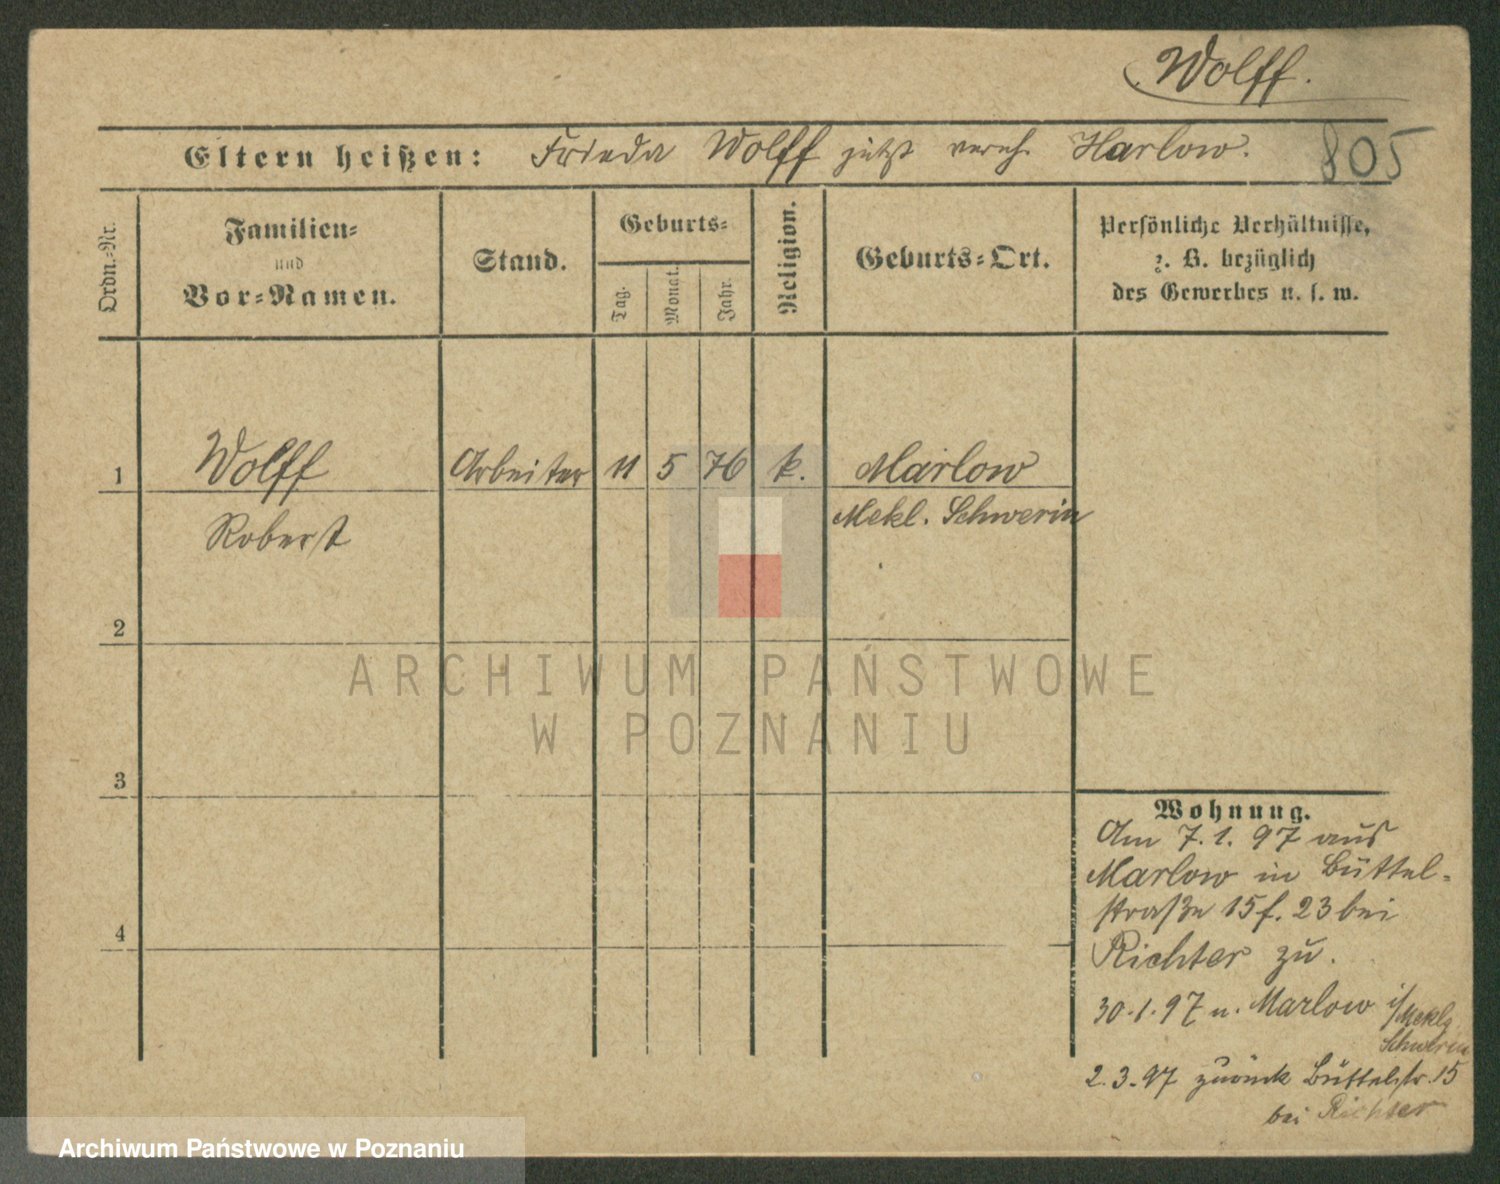 Wolff.
Eltern heißen: Frieda Wolff jetzt vereh. Harlow.
805
Ordn.-Nr.
Familien-
und
Vor-Namen.
Stand.
Geburts-
Tag.
Monat.
Jahr.
Religion.
Geburts-Ort.
Persönliche Verhältnisse,
z. B. bezüglich
des Gewerbes u. s. w.
1 Wolff Arbeiter 11 5 76 k. Marlow
Robert Mekl. Schwerin
2
ARCHIWUM PAŃSTWOWE
W POZNANIU
3
Wohnung.
Am 7.1.97 aus
Marlow in Büttel-
straße 15 f. 23 bei
4
Richter zu.
30.1.97 n. Marlow i/Meklg
Schwerin
2.3.97 zurück Büttelstr. 15
bei Richter
Archiwum Państwowe w Poznaniu